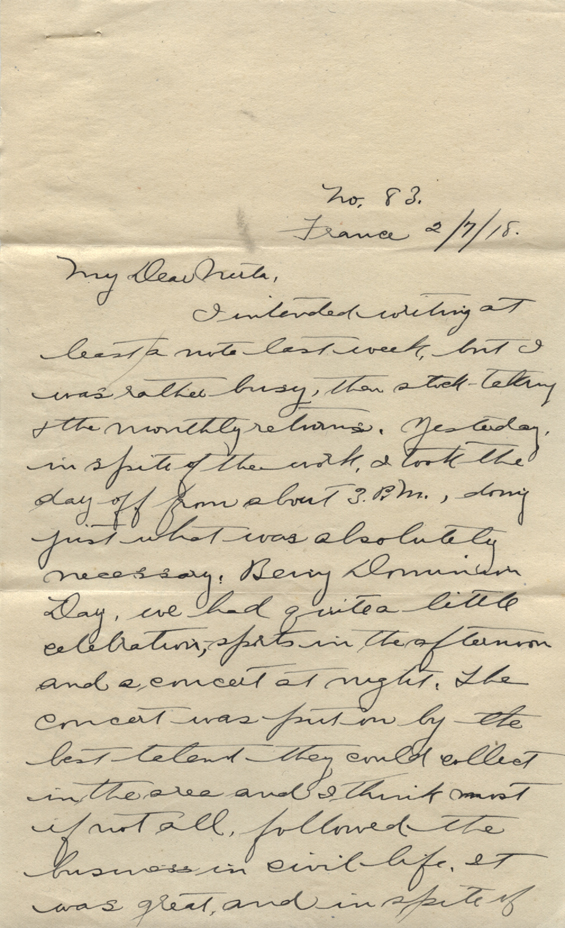 No. 83.
France 2/7/18.
My Dear Neeta,
I intended writing at
least a note last week, but I
was rather busy, then stock-taking
& the monthly returns. Yesterday,
in spite of the work, I took the
day off from about 3 P.M., doing
just what was absolutely
necessary. Being Dominion
Day, we had quite a little
celebration, sports in the afternoon
and a concert at night. The
concert was put on by the
best talend they could collect
in the area and I think most
if not all, followed the
business in civil life. It
was great, and in spite of